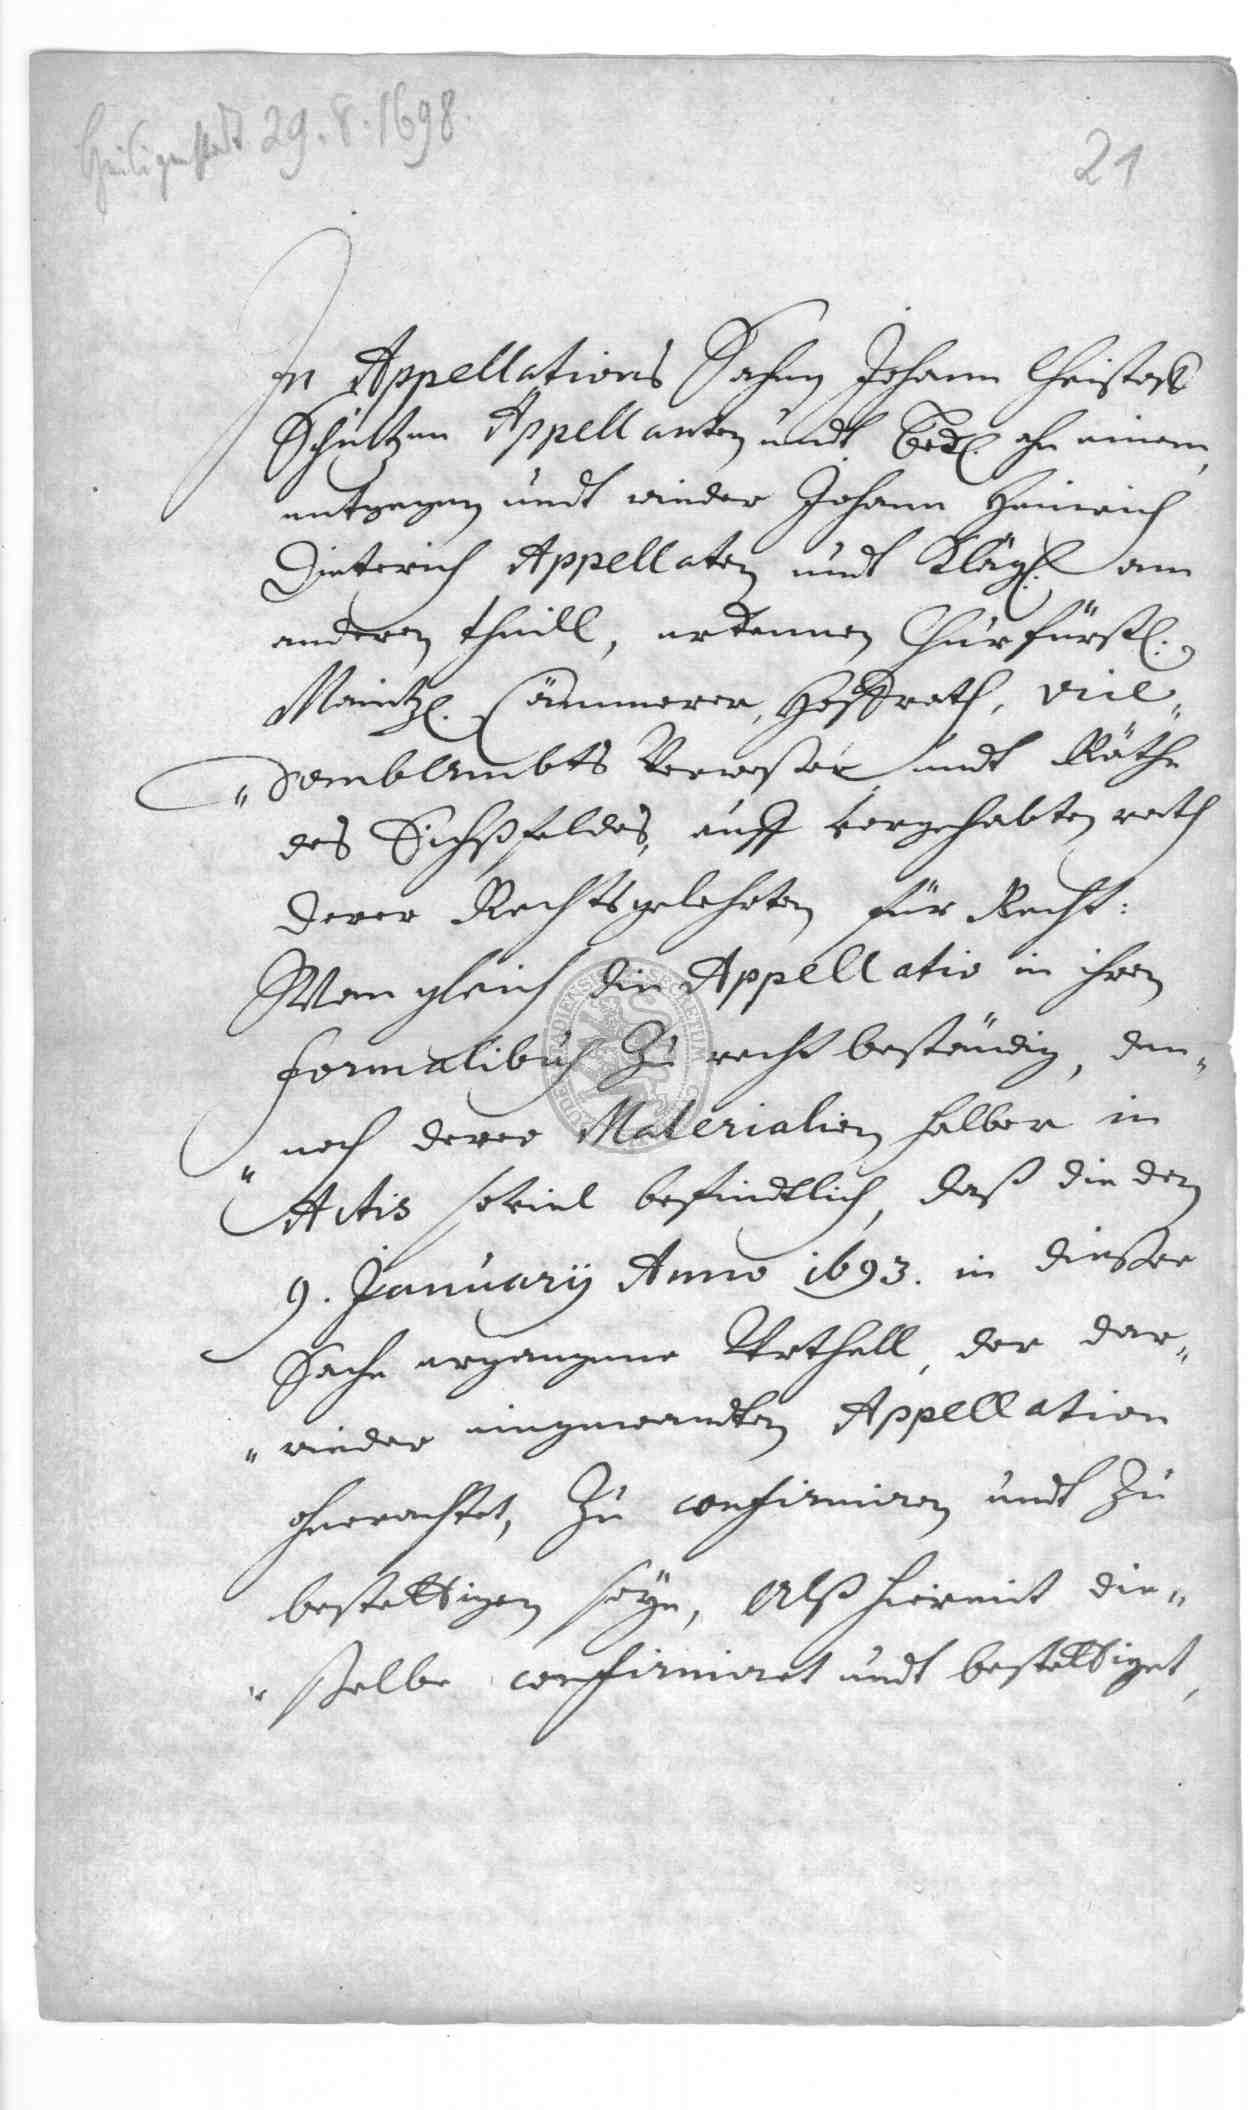 Heiligenstadt 29.8.1698.
21
In Appellations Sachen Johann Christoph
Schützen Appellanten undt Bekl. ahn einem,
entgegen undt wieder Johann Heinrich
Dieterich Appellaten undt Kläg. am
anderen theill, erkennen Churfürstl.
Maintzl. Cämmerer, Hoffrath, Vice„
„domblambts Verweßer undt Räthe
des Eichßfeldes, auff vorgehabten rath
derer Rechtsgelehrten für Recht:
Wan gleich die Appellatio in ihren
formalibus Zu recht beständig, den„
„noch derer Materialien halber in
Actis soviel befindtlich, daß die den
9. January Anno 1693. in dießer
Sache ergangene Urthell, der dar„
„wieder eingewandten Appellation
ohnerachtet, Zu confirmiren undt Zu
bestettigen seye, Alß hiermit die„
„selbe confirmiret undt bestettiget,